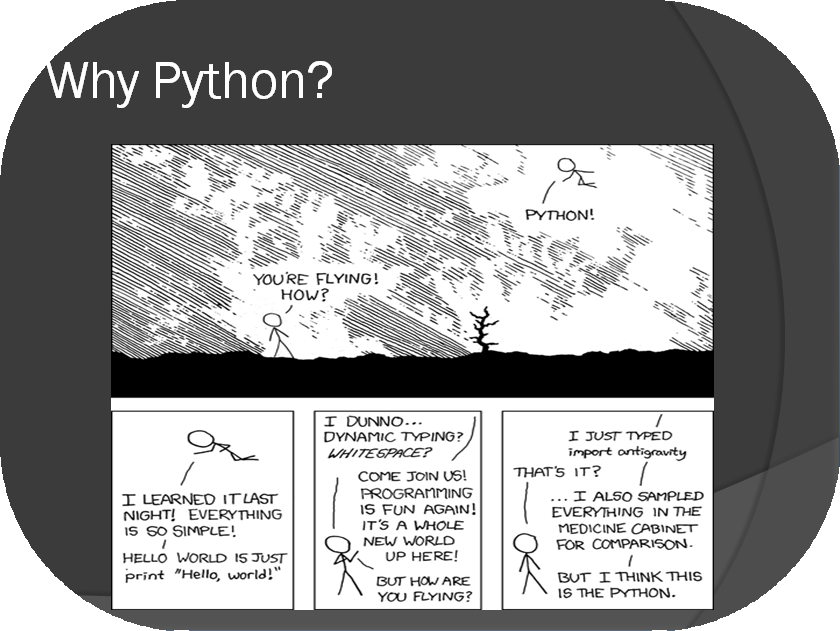 Why Python?
PYTHON!
YOU'RE FLYING!
HOW?
I LEARNED IT LAST
NIGHT! EVERYTHING
IS SO SIMPLE!
HELLO WORLD IS JUST
print "Hello, world!"
I DUNNO...
DYNAMIC TYPING?
WHITESPACE?
COME JOIN US!
PROGRAMMING
IS FUN AGAIN!
IT'S A WHOLE
NEW WORLD
UP HERE!
BUT HOW ARE
YOU FLYING?
I JUST TYPED
import antigravity
THAT'S IT?
... I ALSO SAMPLED
EVERYTHING IN THE
MEDICINE CABINET
FOR COMPARISON.
BUT I THINK THIS
IS THE PYTHON.